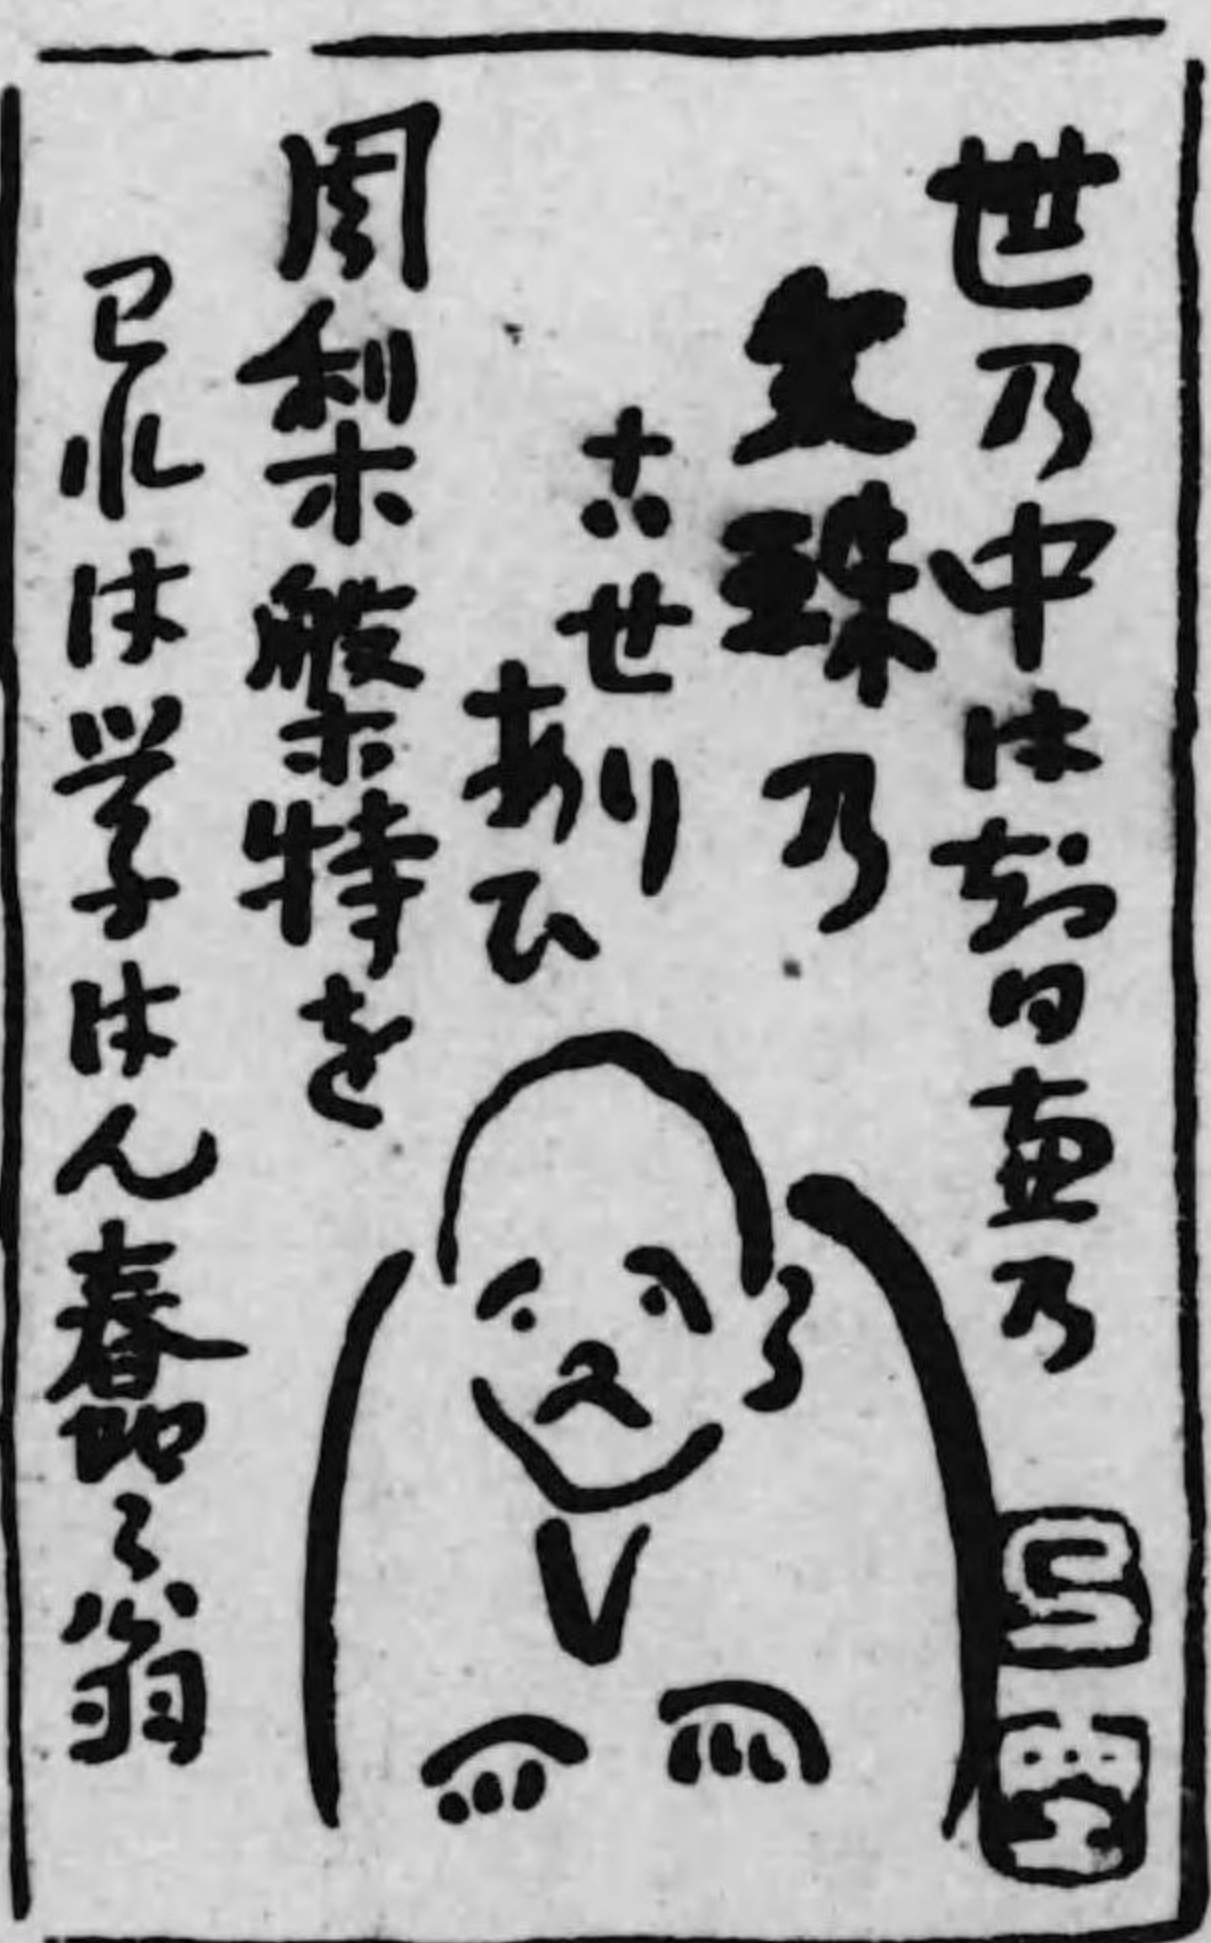 世乃中は智恵乃
文珠乃
古せり
あひ
周梨槃特を
己れは学はん蠢々翁